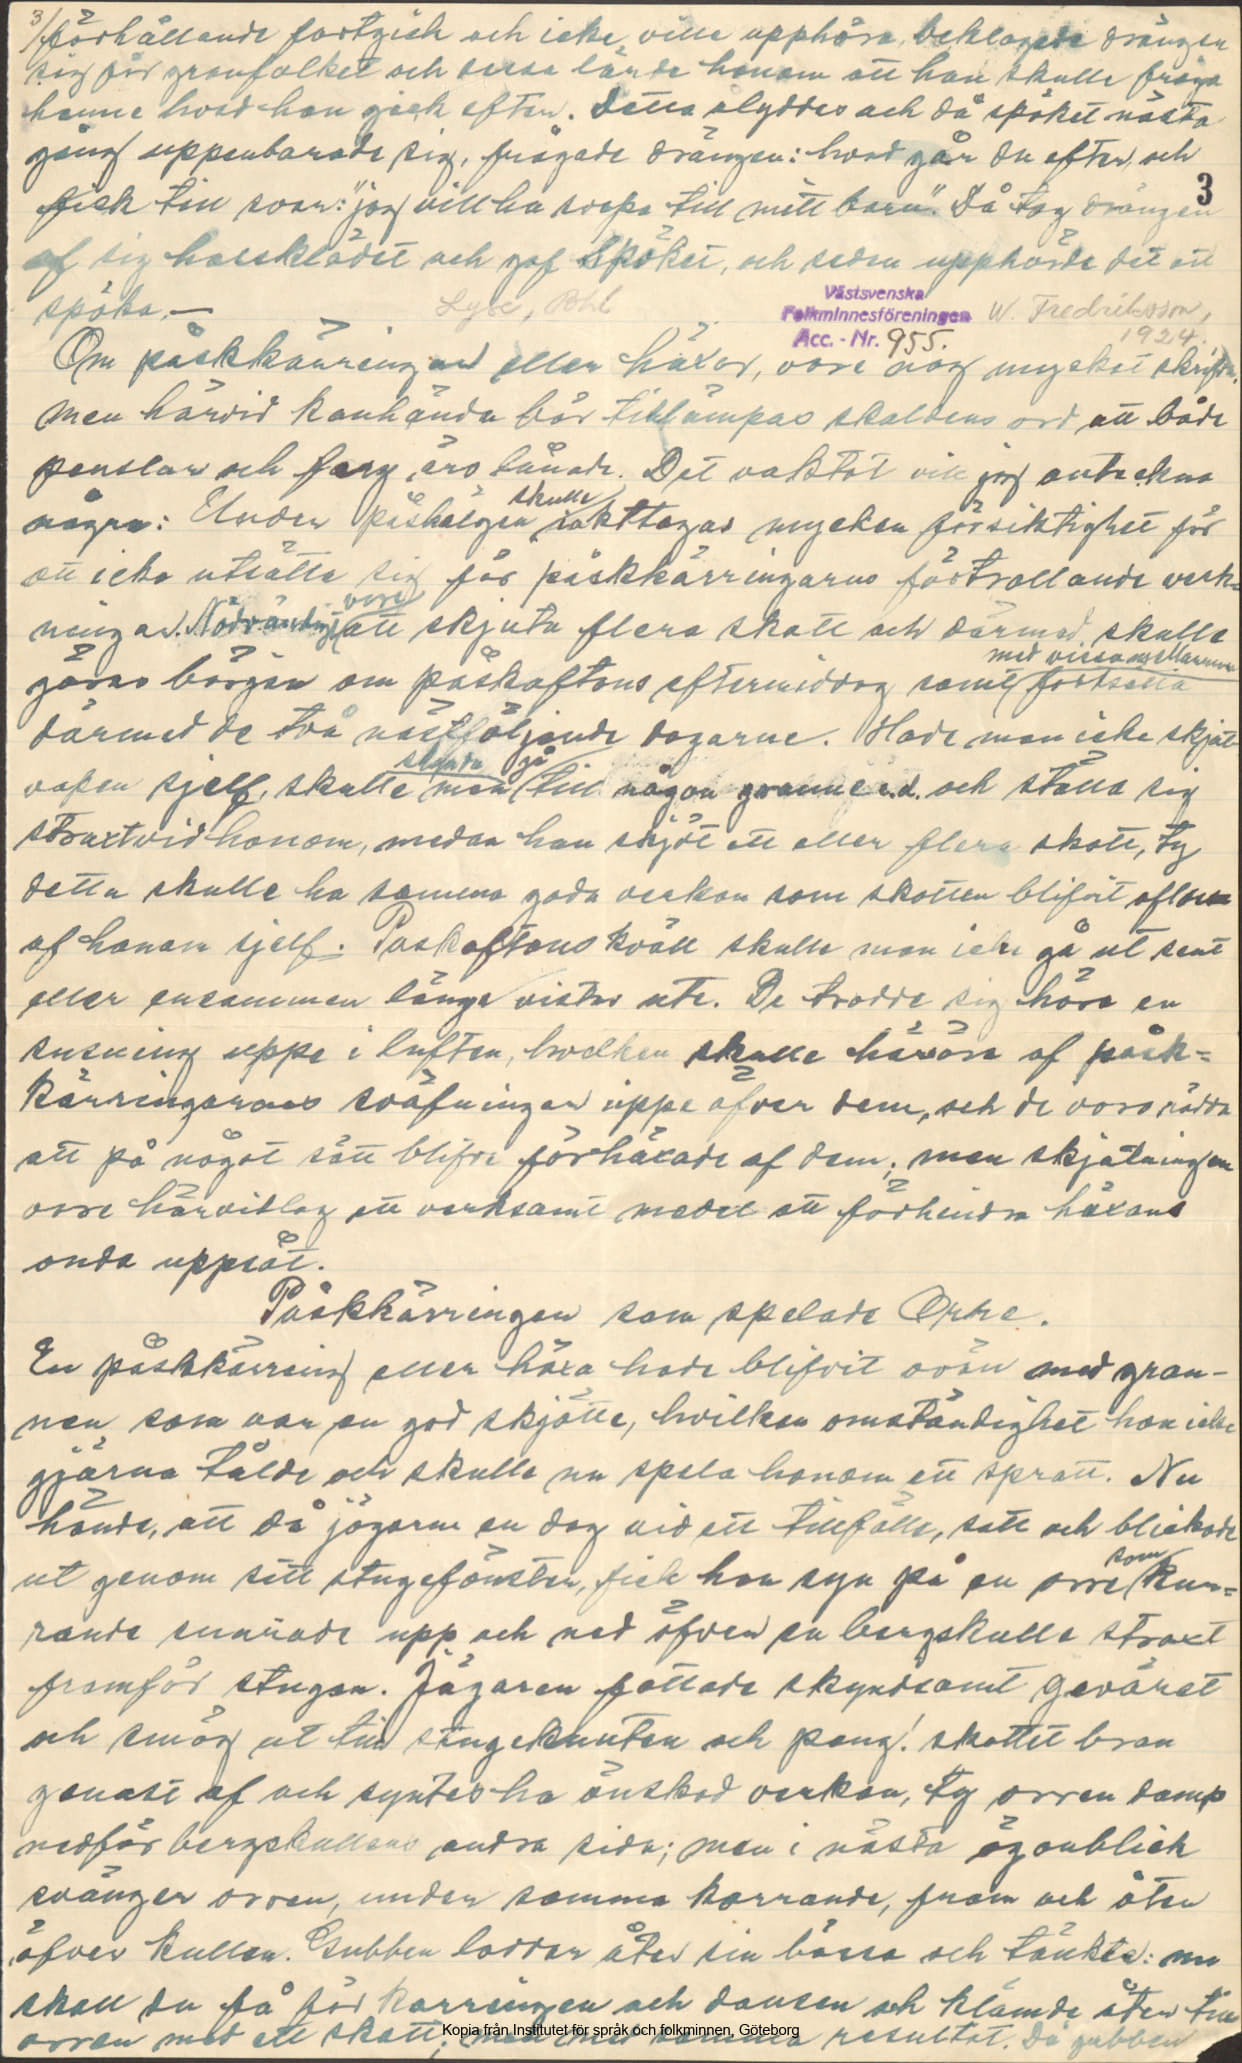 3/ förhållande fortgick och icke ville upphöra, beklagade drängen
sig för granfolket och dessa lärde honom att han skulle fråga
henne hvad hon gick efter. Detta olyddes och då spöket nästa
gång uppenbarade sig, frågade drängen: hvad går du efter, och
fick till svar: "jag vill ha svepe till mitt barn". Då tog drängen
3
af sig halsklädet och gaf spöket, och sedan upphörde det att
spöka. —
Lyse, Bohl
Västsvenska
Folkminnesföreningen
Acc. - Nr. 955.
W. Fredriksson,
1924.
Om påskkärringar eller häxor, vore nog mycket skrifva,
men härvid kanhända bör tillämpas skaldens ord att både
penslar och färg äro lånade. Det vaktat vill jag anteckna
några: Under påskhelgen skulle iakttagas mycken försiktighet för
att icke utsätta sig för påskkärringarnas förtrollande verk-
ningar. Nödvändigt vore att skjuta flera skott och därmed skulle
göras början om påskaftons eftermiddag samt med vissa mellanrum fortsätta
därmed de två nästföljande dagarne. Hade man icke skjut-
vapen sjelf, skulle man skynda gå till någon granne e.d. och ställa sig
straxt vid honom, medan han skjöt ett eller flera skott, ty
detta skulle ha samma goda verkan som skotten blifvit aflossa
af honom sjelf. Påskaftons kväll skulle man icke gå ut sent
eller ensammen länge vistas ute. De trodde sig höra en
susning uppe i luften, hvilken skulle härröra af påsk=
kärringarnas sväfningar uppe öfver dem, och de voro rädda
att på något sätt blifva förhäxade af dem; men skjutningen
vore härvidlag ett verksamt medel att förhindra häxans
onda uppsåt.
Påskkärringen som spelade Orre.
En påskkärring eller häxa hade blifvit ovän med gran-
nen som var en god skjötte, hvilken omständighet hon icke
gjärna tålde och skulle nu spela honom ett spratt. Nu
hände, att då jägarne en dag vid ett tillfälle, satt och blickade
ut genom sitt stugefönster, fick han syn på en orre som kur=
rande snurrade upp och ned öfver en bergskulle straxt
framför stugan. Jägaren fattade skyndsamt geväret
och smög ut till stugeknuten och pang! skottet bran
genast af och syntes ha önskad verkan, ty orren damp
nedför bergskullens andra sida; men i nästa ögonblick
svänger orren, under samma korrande, fram och åter
öfver kullen. Gubben laddar åter sin bössa och tänkte: nu
skall du få för karringen och dansen och klämde åter till
orren med ett skott; men med samma resultat. Då gubben
Kopia från Institutet för språk och folkminnen, Göteborg